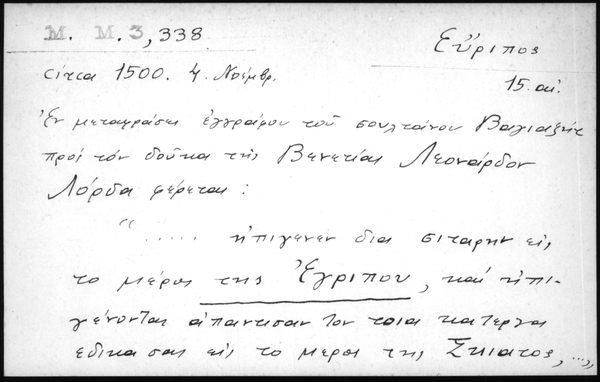 M. M. 3, 338
Εὔριπος
circa 1500. 4 Νοέμβρ.
15. αἰ.
Ἐν μεταφράσει ἐγγράφου τοῦ σουλτάνου Βαγιαζήτ
πρὸς τὸν δοῦκα τῆς Βενετίας Λεονάρδον
Λόρδα φέρεται:
"..... ἠπίγενεν δια σιταρην εἰς
το μέρος της Ἔγριπου, και ἠπι-
γένοντας ἀπαντισαν τον τοια κατεργα
εδικα σας εἰς το μερος της Σκιατος, ...,